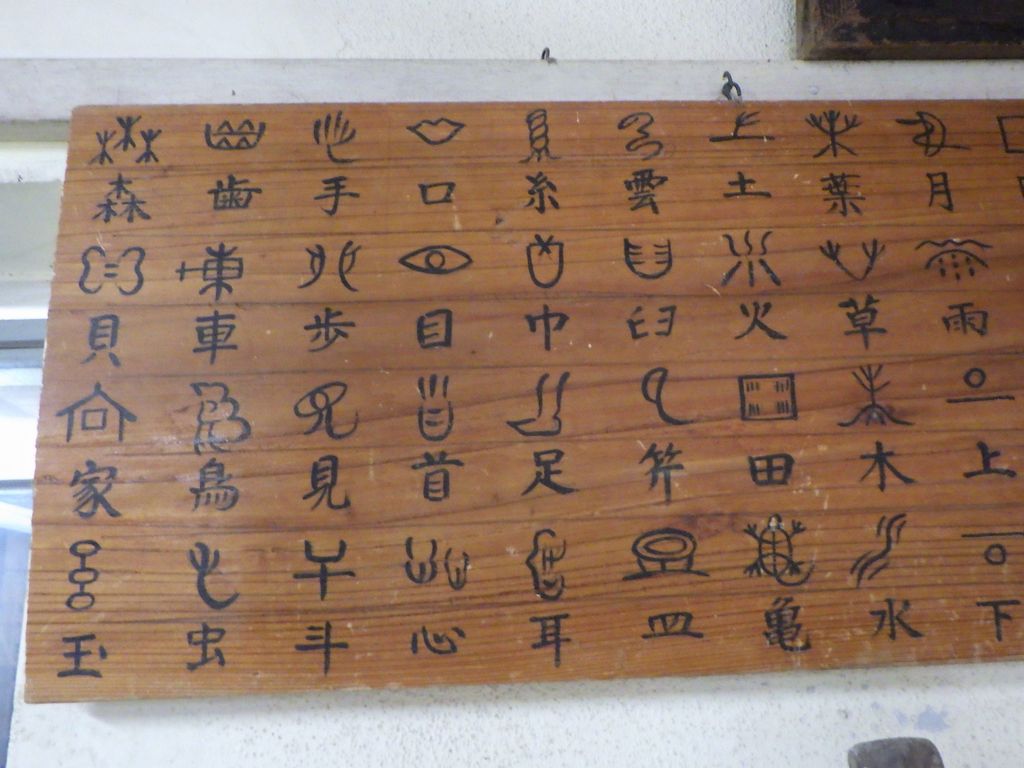 森 歯 手 口 糸 雲 土 葉 月
貝 車 歩 目 巾 臼 火 草 雨
家 鳥 見 首 足 笄 田 木 上
玉 虫 斗 心 耳 皿 亀 水 下